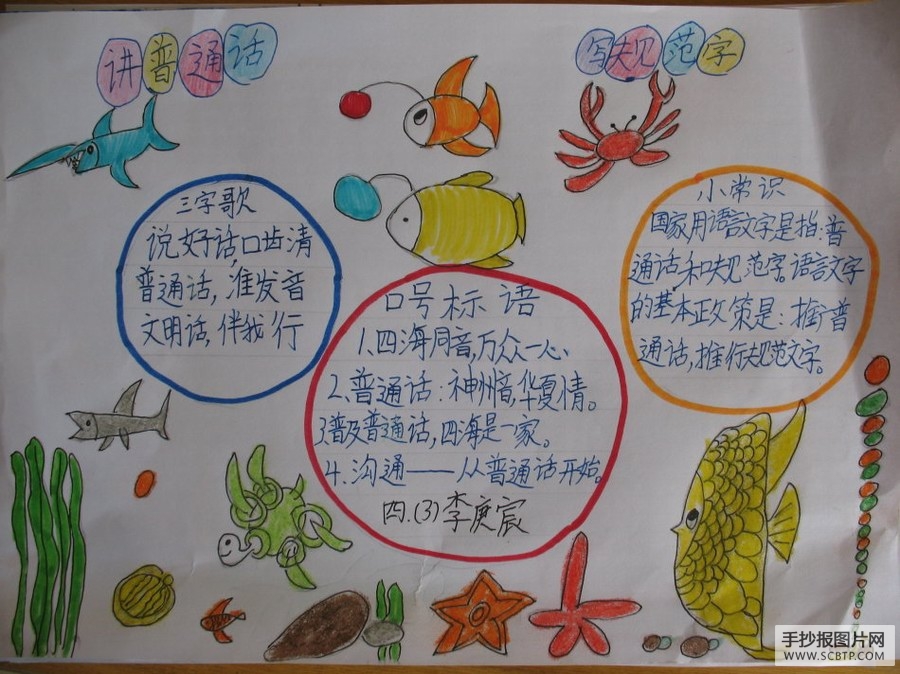 讲普通话
写规范字
三字歌
说好话,口齿清
普通话,准发音
文明话,伴我行
口号标语
1、四海同音,万众一心、
2、普通话:神州音,华夏情。
3普及普通话,四海是一家。
4、沟通——从普通话开始。
四.(3)李庚宸
小常识
国家用语言文字是指:普
通话和规范字。语言文字
的基本政策是:推行普
通话,推行规范文字。
手抄报图片网
WWW.SCBTP.COM